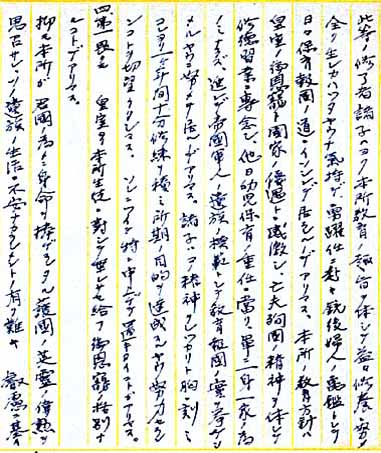 此等ノ修了者諸子ハヨク本所教育ノ趣旨ヲ体シテ益々修養ニ努メ
全ク生レカハツタヤウナ気持デ、勇躍任ニ赴キ銃後婦人ノ亀鑑トシテ
日々保育報国ノ道ニイソシンデ居ルノデアリマス。本所ノ教育方針ハ
皇室ノ御恩寵ト国家ノ優遇トニ感激シ、亡夫殉国ノ精神ヲ体シテ
修徳習業ニ専念シ、他日幼児保育ノ重任ニ当リ、単ニ一身一家ノ為
ノミナラズ、進ンデ帝国軍人ノ遺族ノ模範トシテ教育報国ノ実ヲ挙ゲシ
メルヤウニ努メテ居ルノデアリマス。諸子ハヨク精神ヲシツカリト胸ニ刻ミ
コレヨリ一ケ年間十分修練ヲ積ミ所期ノ目的ヲ達成スルヤウ努力セラレ
ンコトヲ切望シテヤミマセン。ソレニツイテ特ニ申上ゲテ置キタイコトガアリマス。
四、第一段ニ 皇室ヨリ本所生徒ニ対シテ垂レサセ給フ御恩寵ノ格別ナ
ルコトデアリマス。
抑々本所ガ君国ノ為ニ身命ヲ捧ゲマシタル護国ノ英霊ノ偉勲ヲ
思召サレ、ソノ遺族ノ生活ニ不安ナカラシメントノ有リ難キ 叡慮ニ基キ